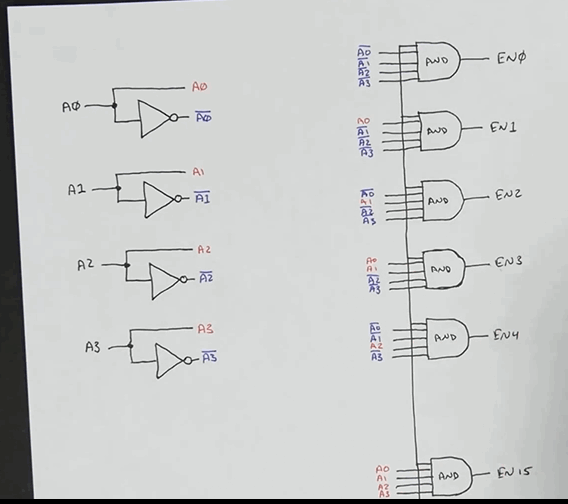 A0
A0 A̅0̅
A1
A1 A̅1̅
A2
A2 A̅2̅
A3
A3 A̅3̅
A̅0̅
A̅1̅
A̅2̅
A̅3̅
AND EN0
A0
A̅1̅
A̅2̅
A̅3̅
AND EN1
A̅0̅
A1
A̅2̅
A̅3̅
AND EN2
A0
A1
A̅2̅
A̅3̅
AND EN3
A̅0̅
A̅1̅
A2
A̅3̅
AND EN4
A0
A1
A2
A3
AND EN15